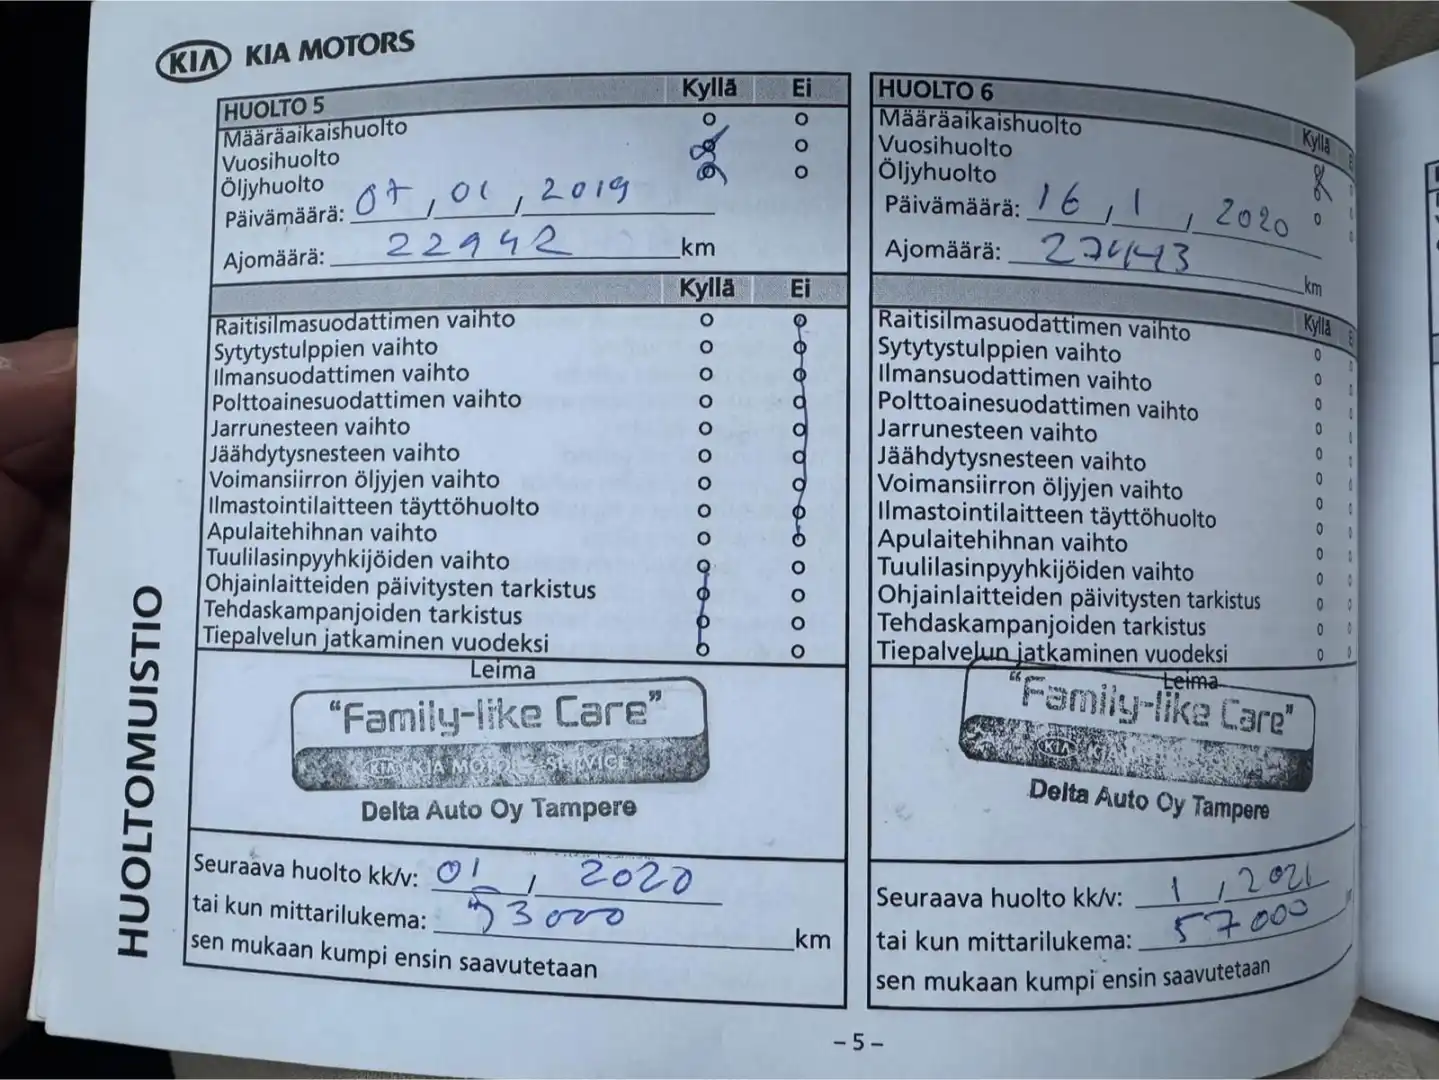 KIA KIA MOTORS
HUOLTOMUISTIO
HUOLTO 5 Kyllä Ei
Määräaikaishuolto
Vuosihuolto
Öljyhuolto
Päivämäärä: 07, 01, 2019
Ajomäärä: 22942 km
Kyllä Ei
Raitisilmasuodattimen vaihto
Sytytystulppien vaihto
Ilmansuodattimen vaihto
Polttoainesuodattimen vaihto
Jarrunesteen vaihto
Jäähdytysnesteen vaihto
Voimansiirron öljyjen vaihto
Ilmastointilaitteen täyttöhuolto
Apulaitehihnan vaihto
Tuulilasinpyyhkijöiden vaihto
Ohjainlaitteiden päivitysten tarkistus
Tehdaskampanjoiden tarkistus
Tiepalvelun jatkaminen vuodeksi
Leima
"Family-like Care"
KIA KIA MOTORS SERVICE
Delta Auto Oy Tampere
Seuraava huolto kk/v: 01 / 2020
tai kun mittarilukema: 53000 km
sen mukaan kumpi ensin saavutetaan
HUOLTO 6 Kyllä
Määräaikaishuolto
Vuosihuolto
Öljyhuolto
Päivämäärä: 16, 1, 2020
Ajomäärä: 27443 km
Kyllä
Raitisilmasuodattimen vaihto
Sytytystulppien vaihto
Ilmansuodattimen vaihto
Polttoainesuodattimen vaihto
Jarrunesteen vaihto
Jäähdytysnesteen vaihto
Voimansiirron öljyjen vaihto
Ilmastointilaitteen täyttöhuolto
Apulaitehihnan vaihto
Tuulilasinpyyhkijöiden vaihto
Ohjainlaitteiden päivitysten tarkistus
Tehdaskampanjoiden tarkistus
Tiepalvelun jatkaminen vuodeksi
Leima
"Family-like Care"
KIA
Delta Auto Oy Tampere
Seuraava huolto kk/v: 1 / 2021
tai kun mittarilukema: 57000
sen mukaan kumpi ensin saavutetaan
- 5 -